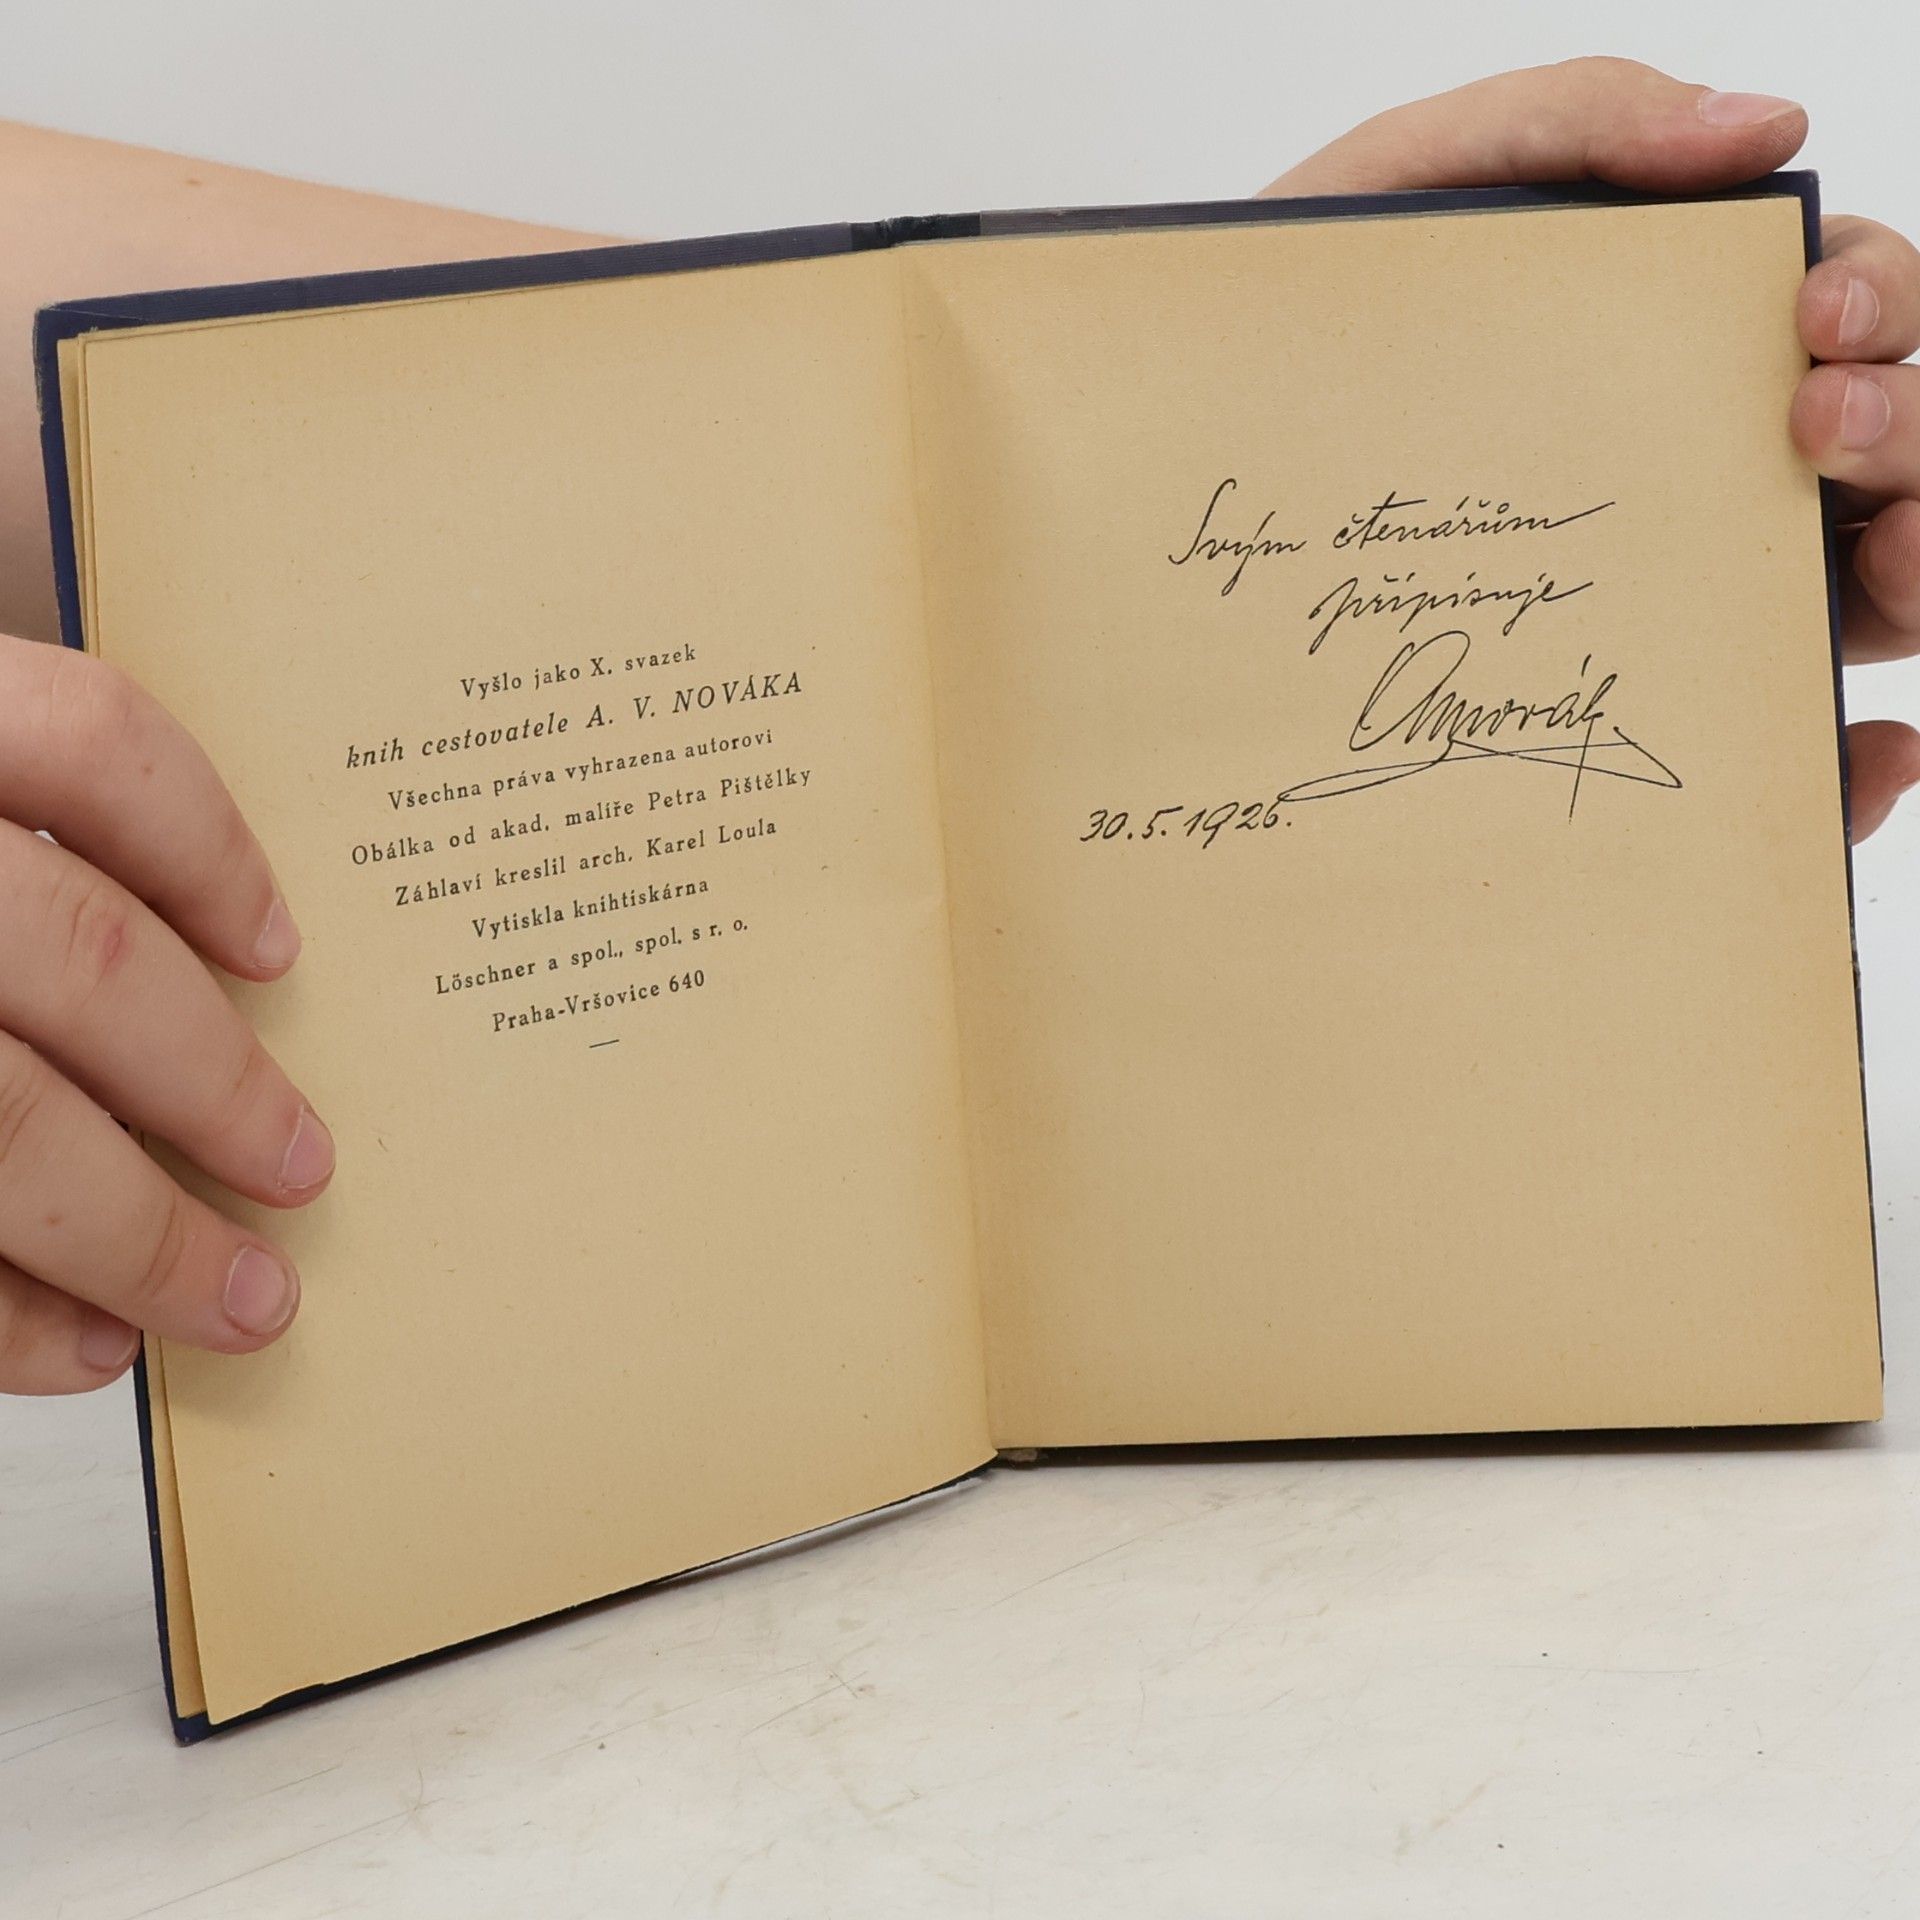 Vyšlo jako X. svazek
knih cestovatele A. V. NOVÁKA
Všechna práva vyhrazena autorovi
Obálka od akad. malíře Petra Pištělky
Záhlaví kreslil arch. Karel Loula
Vytiskla knihtiskárna
Löschner a spol., spol. s r. o.
Praha-Vršovice 640
Svým čtenářům
připisuje
30.5.1926.